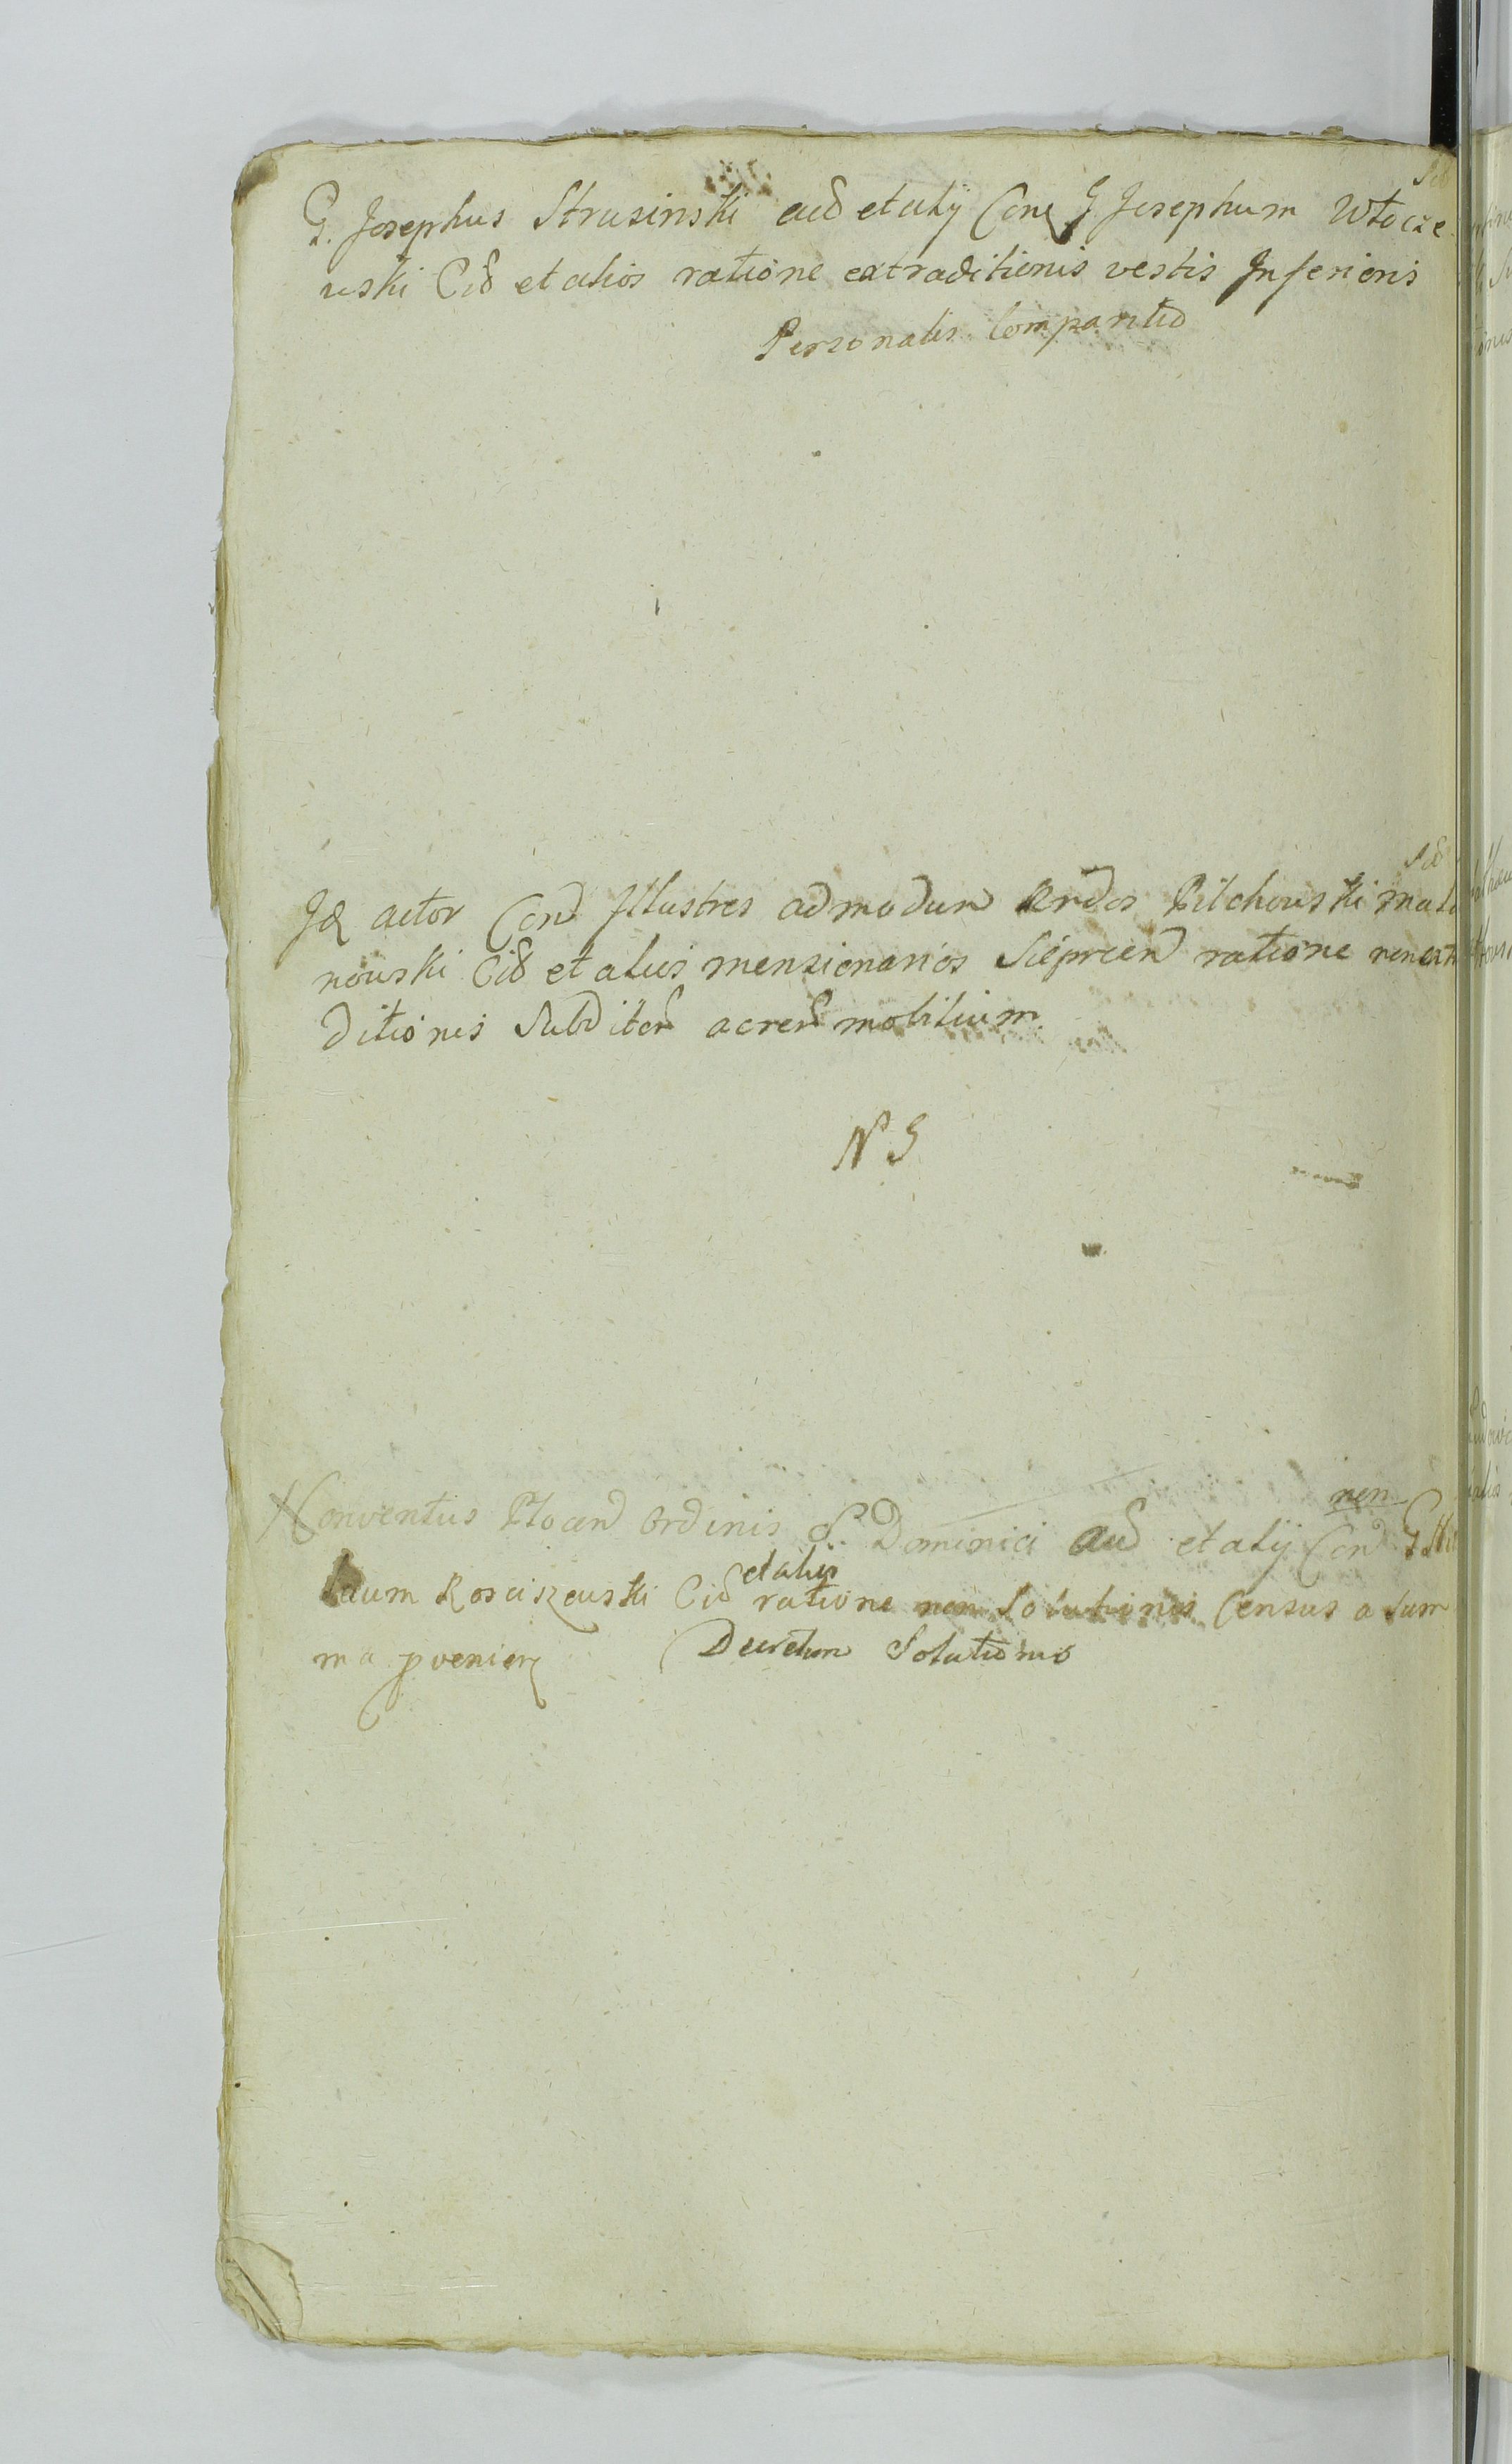 G. Josephus Strusinski acd et alij Conq G Josephum Włocze
wski Cid et alios ratione extraditionis vestis Inferioris
Personalis Comparitio
Id actor Cond Illustres admodum Rndos Pilchowski Mali
nowski Cid et alios mensionarios Sieprcen ratione non extra
ditionis Subditor ac rer mobilium
N S
non
Conventus Płocen Ordinis S. Dominici acd et alij Con G
et alijs
laum Rosciszewski Cid ratione non Solutionis Census a Sum
ma pvenien Decretum Solutionis